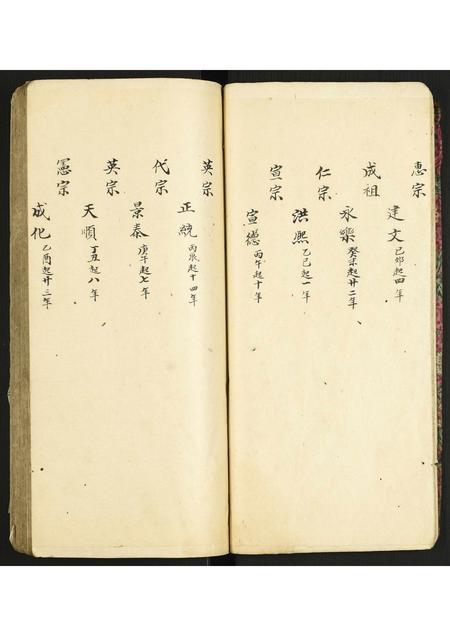 惠宗
建文 己卯起四年
成祖
永樂 癸未起廿二年
仁宗
洪熙 乙巳起一年
宣宗
宣德 丙午起十年
英宗
正統 丙辰起十四年
代宗
景泰 庚午起七年
英宗
天順 丁丑起八年
憲宗
成化 乙酉起廿三年